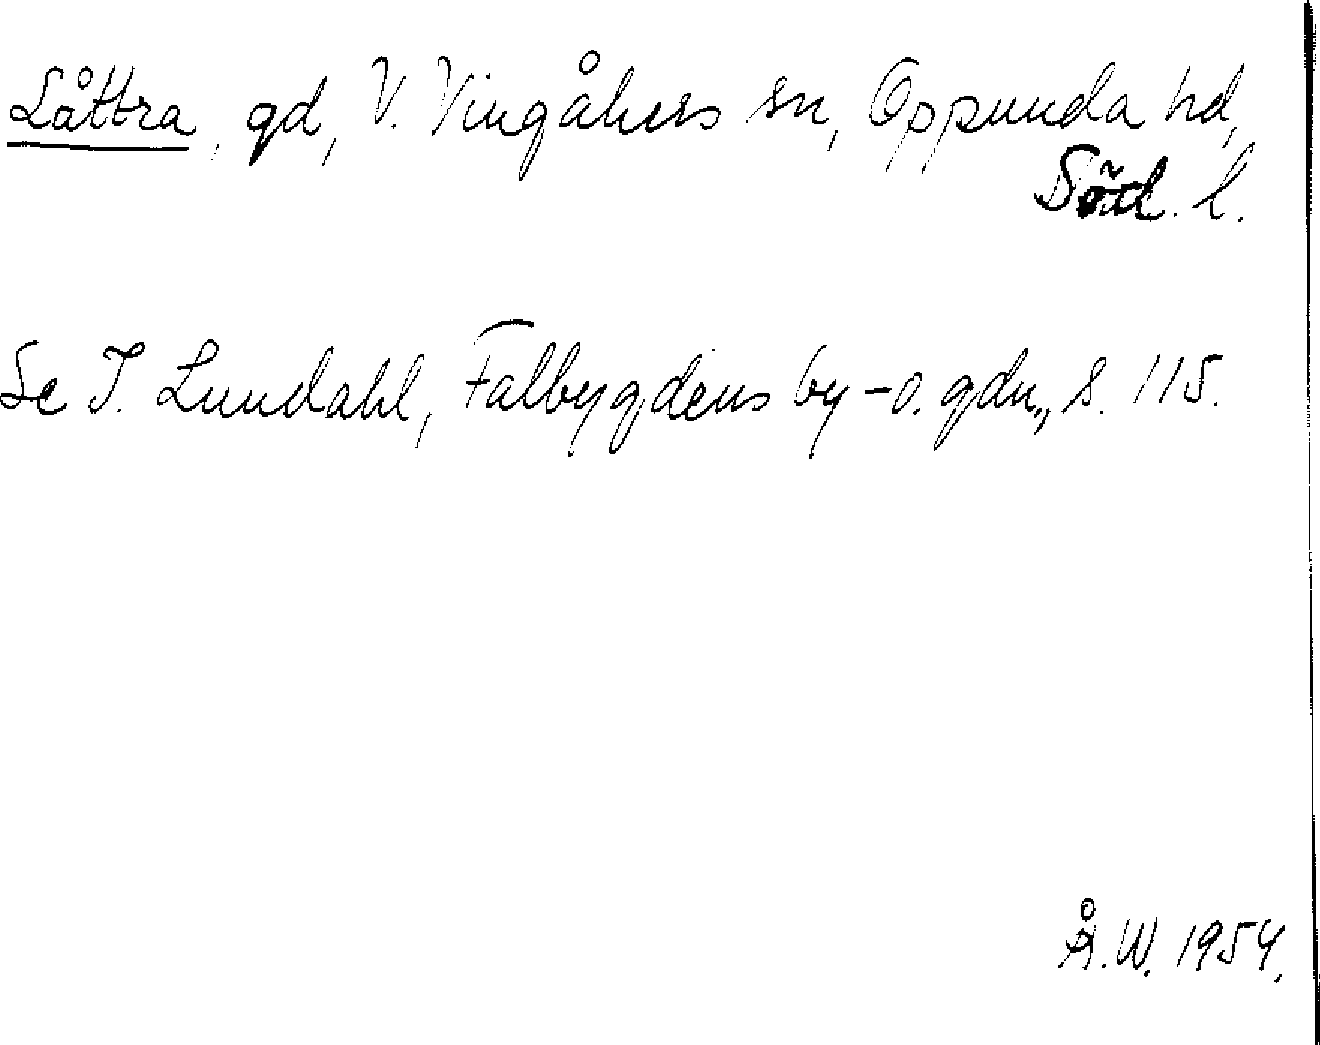 Låttra, gd, V. Vingåkers sn, Oppunda hd,
Söd. l.
Se I. Lundahl, Falbygdens by- o. gdn., s. 115.
Å.W. 1954.